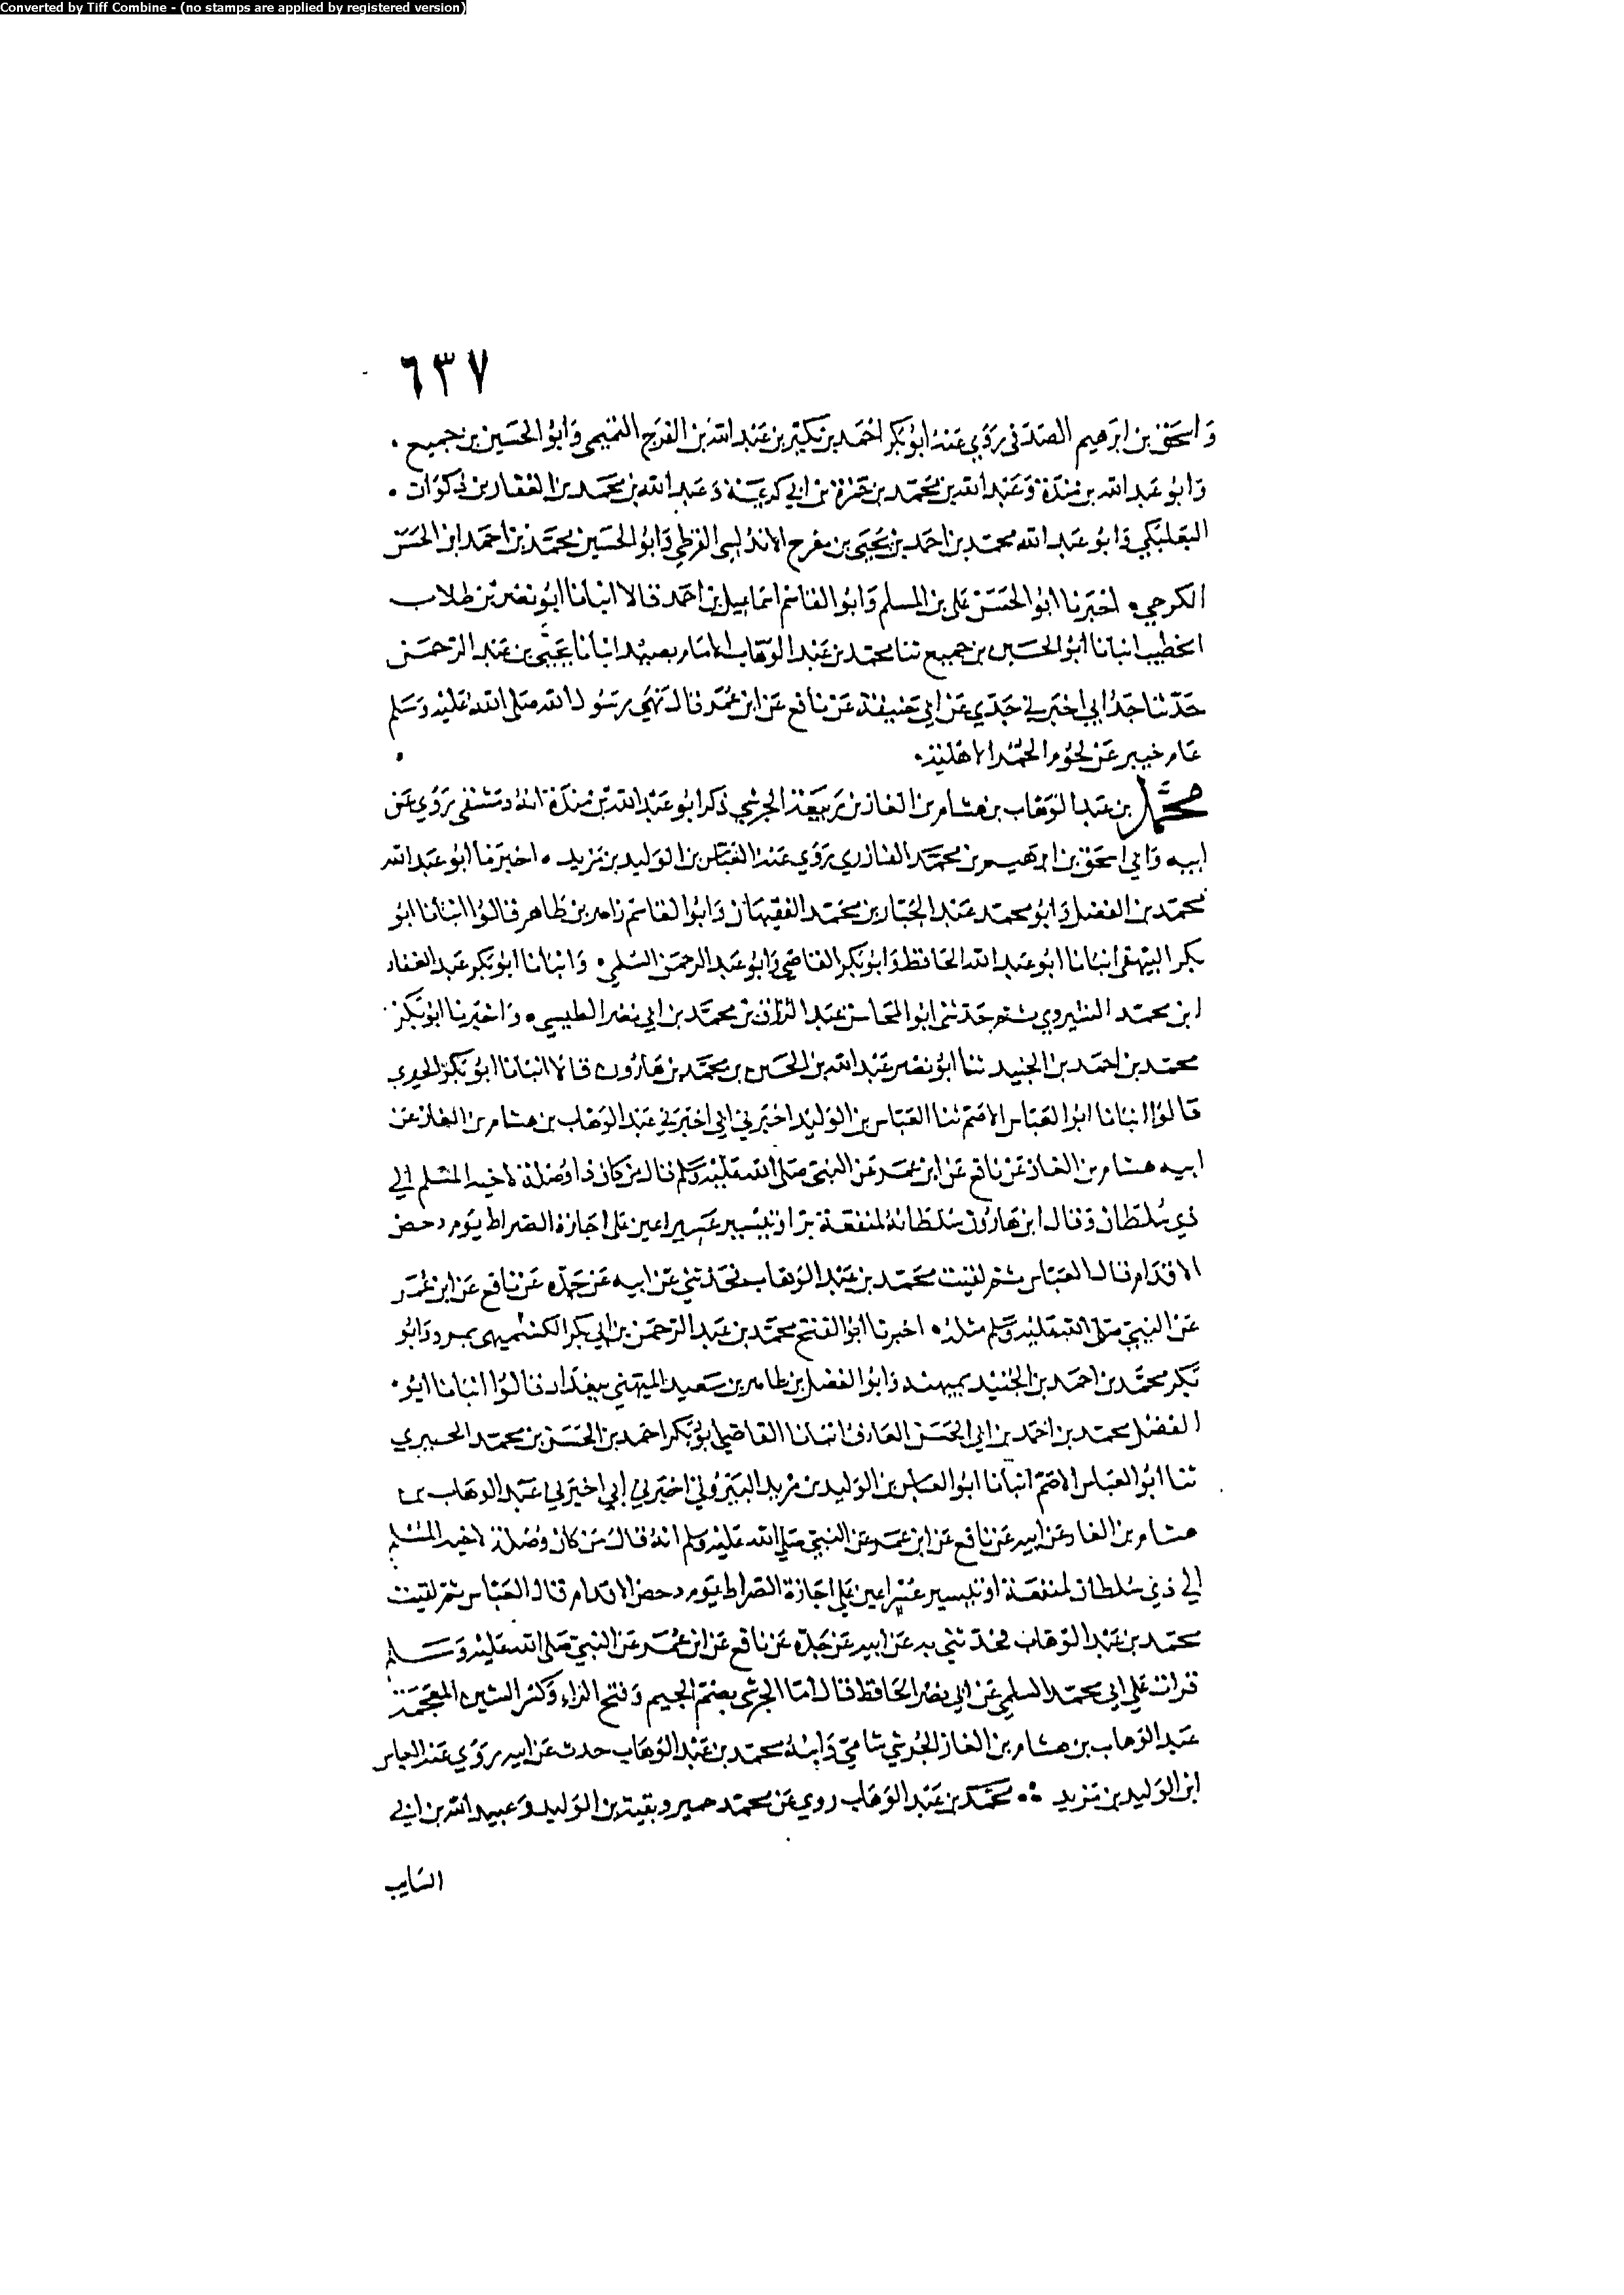 Converted by Tiff Combine - (no stamps are applied by registered version)
٦٣٧
وَاسحق بن ابرهيم الصدفى رَوَي عَنهُ ابوُ بكر احمَد بن بكير بن عَبد الله بن الفرَج التميمى وَابوُ الحسَين بن جميع .
وَابو عَبد الله بن مَندَة وَعَبد الله بن محمّد بن حمزة بن ابي كريمة وعبد الله بن محمد بن الغفار بن ذكوَان .
البَعلبَكي وَابو عَبد الله محمد بن احمَد بن يحيَى بن مفرح الاندلسى القرطبى وَابوُ الحسَين محمَّد بن احمَد ابن الحسَن
الكرجي . اخبَرنا ابوُ الحسَن على بن المسلم وَابوُ القاسم اسماعيل بن احمَد قالا انبَانا ابوُ نصر بن طلاب
الخطيب انبانا ابوُ الحسَين بن جميع ثنا محمد بن عَبد الوهَّاب الامَام بصيدا انبانا يحيى بن عَبد الرّحمَن
حَدّثنا جَدُّ ابي اخبَرني جَدّي عَن ابي حَنيفَة عَن نافع عَن ابن عُمَر قال نَهَي رسَول الله صَلى الله عَليْه وَسَلم
عَام خيبر عَن لحوُم الحمُر الاهليَة .
محمَّد بن عَبد الوَهاب بن هشام بن الغاز بن رَبيعَة الجرشي ذكر ابو عَبْد الله بن مندَة انهُ دمَشقى رَوَي عَن
ابيه وَابي اسحَق بن ابرهيم بن محمَّد الفزاري رَوَي عَنهُ العَبَّاس بن الوَليد بن مَزيد . اخبرَنا ابوُ عَبد الله
محمّد بن الفضل وَابوُ محمد عَبد الجبَار بن محمَد الفقيهان وَابوُ القاسم زاهر بن طاهر قالوُا انبانا ابوُ
بكر البيهقى انبَانا ابوُ عَبد الله الحَافظ وَابوُ بَكر القاضي وَابوُ عَبد الرحمَن السُّلمي . وَانبَانا ابوُ بَكر عَبد الغفار
ابن محمّد الشيروي ثم حَدثنى ابوُ المحَاسن عَبد الرزاق بن محمَّد بن ابي نصر الطبسي . وَاخبَرنا ابوُ بَكر
محمّد بن احمَد بن الجنيد ثنا ابوُ نصر عَبد الله بن الحسَين بن محمَّد بن هَارُون قالا انبَانا ابوُ بَكر الحيري
قالوُا انبَانا ابوُ العَبَّاس الاصَم ثنا العَبّاس بن الوَليد اخبَرني ابي اخبَرني عَبد الوَهاب بن هشام بن الغاز عَن
ابيه هشام بن الغاز عَن نافع عَن ابن عمَر عَن النبيّ صَلى الله عَليه وَسلم قال من كان ذا وُصلة لاخيه المسْلم الي
ذي سُلطان وَقال ابن هَارُون سُلطَانهُ لمنفعَة برّ او تيسير عَسير اعين علي اجَازة الصّراط يَوم دحض
الاقدَام قال العَبّاس ثم لقيت محمّد بن عَبد الوهَاب فحَدّثني عَن ابيه عَن جَدّه عَن نافع عَن ابن عُمَر
عَن النبيّ صَلى الله عَليه وسلم مثلهُ . اخبرنا ابوُ الفتح محمّد بن عَبد الرّحمَن بن ابي بكر الكشميهنى بمرو وَابوُ
بكر محمَّد بن احمَد بن الجُنَيد بميهنه وَابوُ الفضل بن طاهر بن سَعيد الميهَني ببغدَاد قالوُا انبَانا ابوُ .
الفضل محمد بن احمَد بن ابي الحسَن العَارف انبَانا القاضي ابوُ بَكر احمَد بن الحسَن بن محمّد الحيري
ثنا ابوُ العَباس الاصَمّ انبَانا ابوُ العباس بن الوَليد بن مزيد البَيرُوتي اخبَرني ابي اخبَرني عَبد الوهَاب بن
هشام بن الغاز عَن ابيه عَن نافع عَن ابن عمَر عَن النبيّ صَلي الله عَليْه وسلم انهُ قالَ مَن كان وُصْلة لاخيه المسْلم
الي ذي سُلطان لمنفعَة او تيسير عَسْر اعين علي اجَازة الصّراط يَوم دحض الاقدام قال العَبّاس ثم لقيت
محمّد بن عَبْد الوَهاب فحَدّثني به عَن ابيه عَن جَدّه عَن نافع عَن ابن عُمَر عَن النبيّ صَلى الله عَليْه وَسَلم
قرات علي ابي محمّد السلمي عَن ابي نصْر الحَافظ قال امّا الجرشى بضمّ الجيم وَفتح الرّاء وكسْر الشين المعجَمة
عَبد الوَهاب بن هشام بن الغاز الجُرشي شامّي وَابنهُ محمّد بن عَبْد الوُهَاب حدث عَن ابيه رَوَي عَنه العباس
ابن الوَليد بن مَزيد . محمَّد بن عَبْد الوَهَاب روي عَن محمّد حمير وبقيّة بن الوَليد وَعبيد الله بن ابي
السَايب